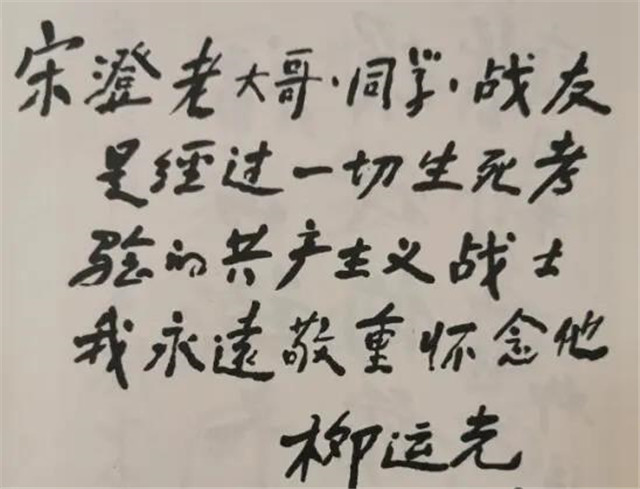 宋澄老大哥·同学·战友
是經过一切生死考
验的共产主义战士
我永遠敬重怀念他
柳运光